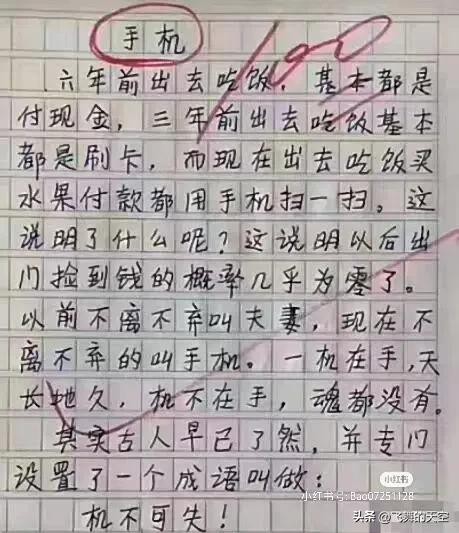 手机
100
六年前出去吃饭，基本都是
付现金，三年前出去吃饭基本
都是刷卡，而现在出去吃饭买
水果付款都用手机扫一扫。这
说明了什么呢？这说明以后出
门捡到钱的概率几乎为零了。
以前不离不弃叫夫妻，现在不
离不弃的叫手机。一机在手，天
长地久，机不在手，魂都没有。
其实古人早已了然，并专门
设置了一个成语叫做：
机不可失！
小红书
小红书号:Bao07251128
头条@飞舞的天空